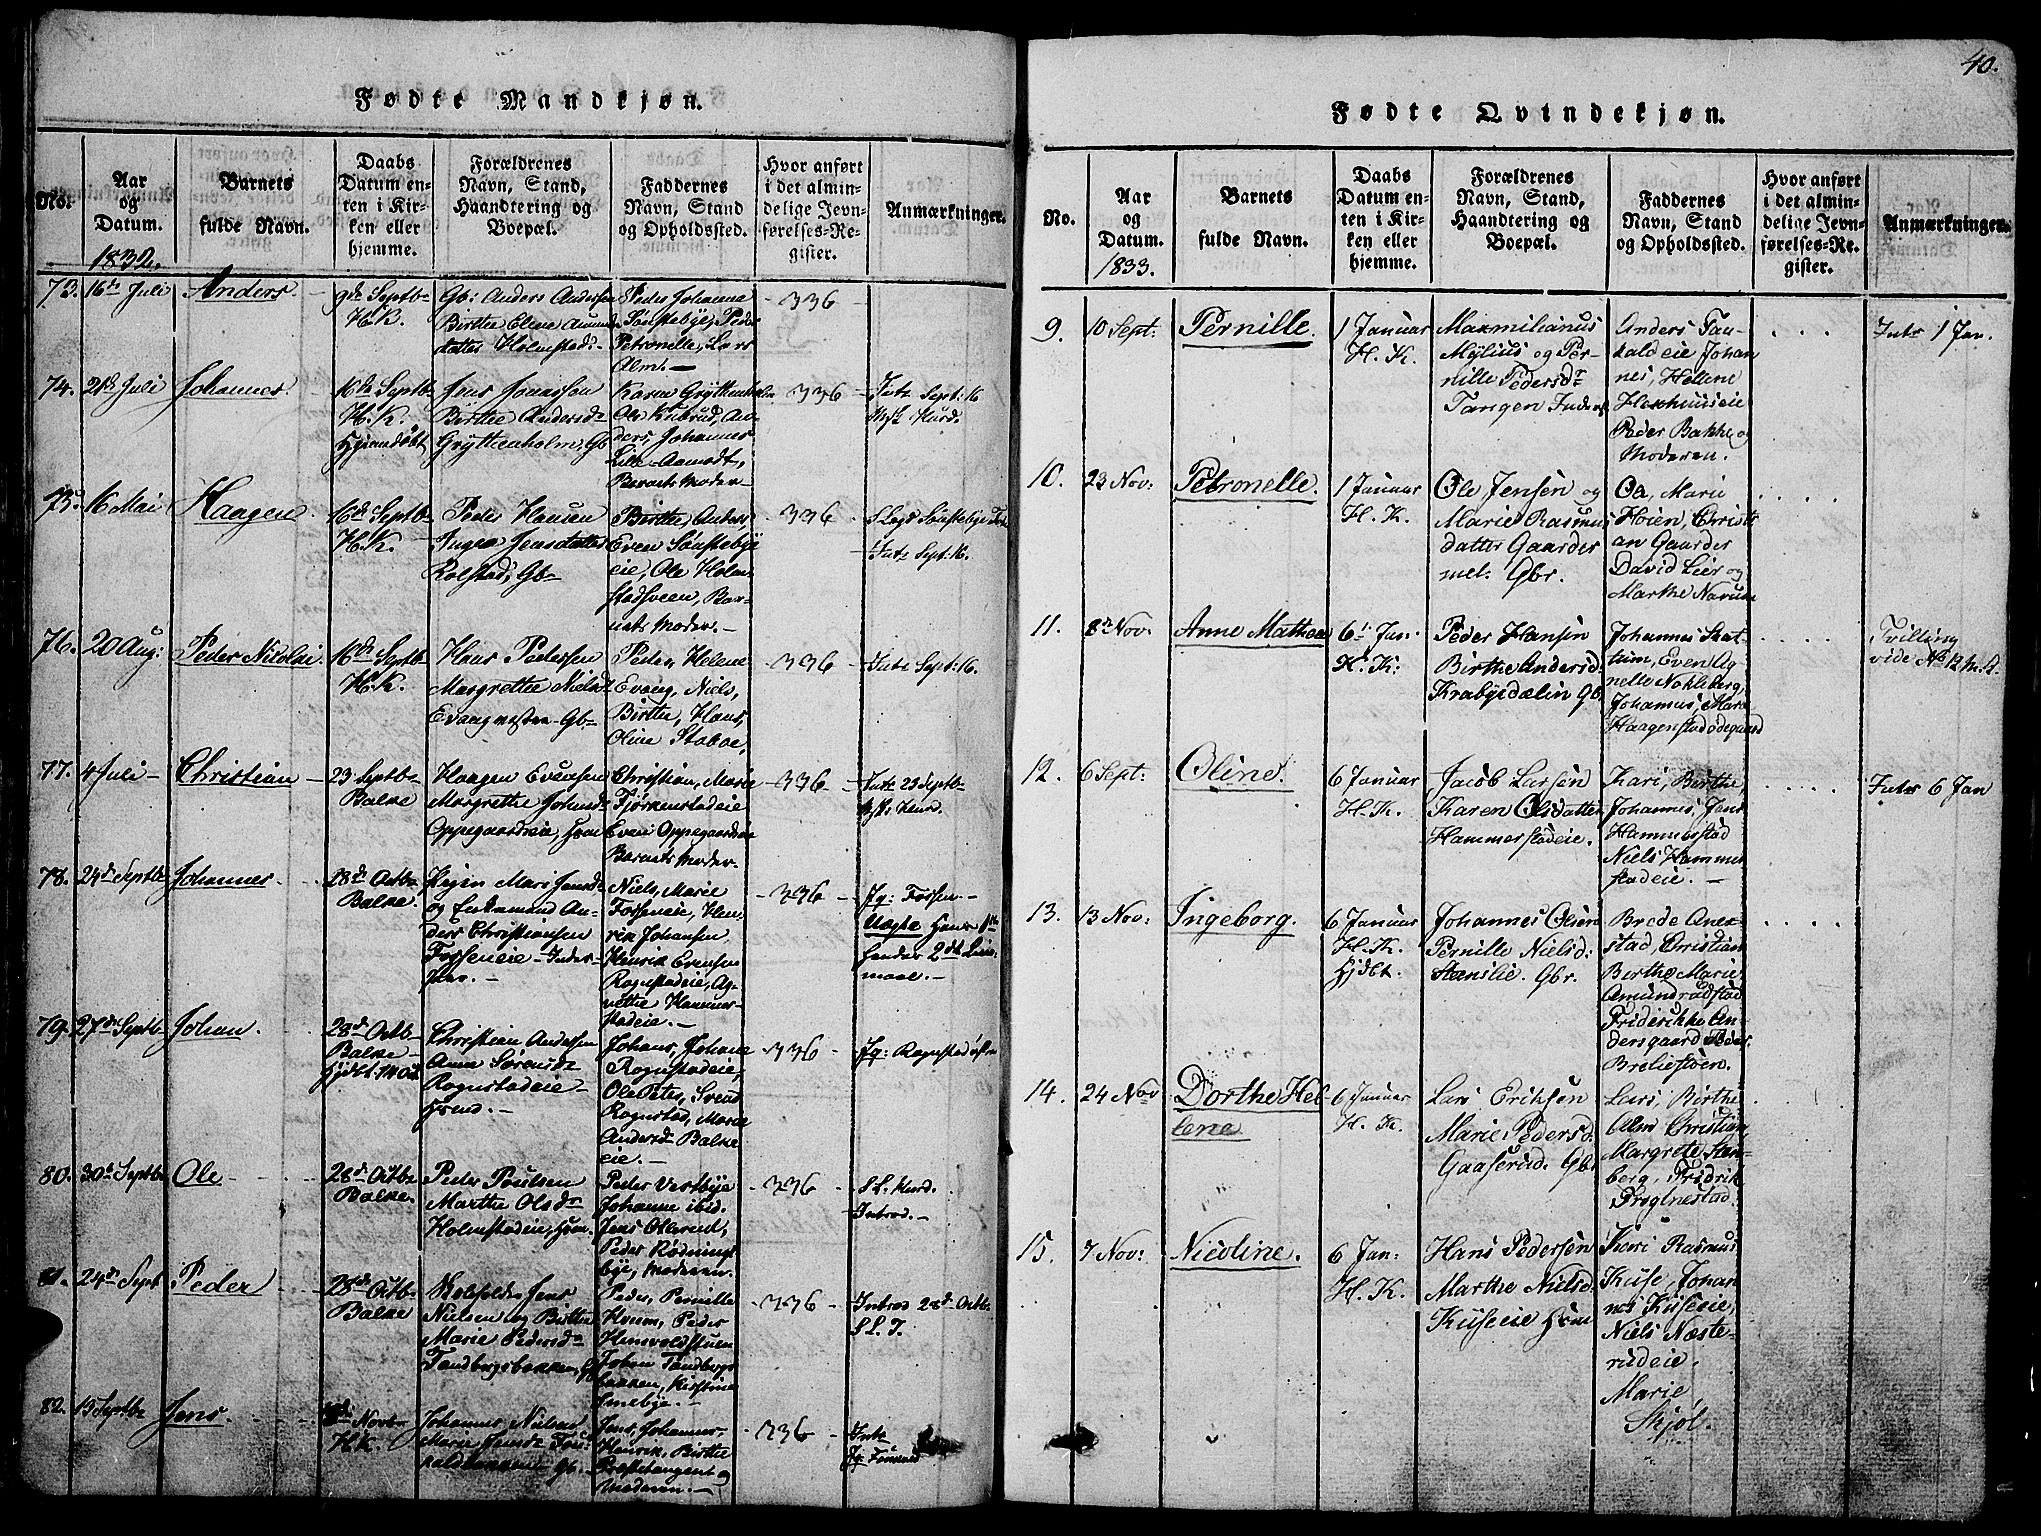 40.
Fødte Mandkjøn.
No:
Aar
og
Datum.
1832.
Barnets
fulde Navn.
Daabs
Datum en-
ten i Kir-
ken eller
hjemme.
Forældrenes
Navn, Stand,
Haandtering og
Boepæl.
Faddernes
Navn, Stand
og Opholdssted.
Hvor anført
i det almin-
delige Jevn-
førelses-Re-
gister.
Anmærkninger.
73. 16de Juli Anders.
9de Septb
H.K.
Gb: Anders Andersen
Birthe Elene Amund
datter Holmstad
Peder Johanna
Sønstebye, Peder
Petronelle, Lars
Alm.
336
74. 21de Juli Johannes.
16de Septb
H.K.
Hjemdøbt
Jens Jonassen
Birthe Andersd
Gryttenholm, Gb
Karen Gryttenholm
Ole Kubrud, An-
ders, Johannes
Lille-Aamodt,
Barnets Moder
336
Intr Sept: 16
75. 16 Mai Haagen
16de Septb
H.K.
Peder Hansen
Inger Jensdatter
Rolstad, Gb
Birthe Anders
Even Sønstebye
eie, Ole Holm-
stadsveen, Bar-
nets Moder.
336
Intr Sept: 16.
76. 20 Aug: Peder Nicolai
16de Septb
H.K.
Hans Pedersen
Margrethe Nielsd
Evang mestre Gb
Peder, Helene
Evang, Niels,
Birthe, Hans,
Oline Stabae,
336
Intr Sept: 16.
77. 4 Juli Christian
23 Septb
Balke
Haagen Evensen
Margrethe Johnsd
Oppegaardseie, Huusm
Christian, Marie
Fjørkenstadeie
Even Oppegaardseie
Barnets Moder
336
Intr 23 Septb
78. 24d Septb Johannes
28d Octb
Balke.
Pigen Mari Jensd
og Enkemand An-
ders Christiansen
Fosseneie
Niels, Marie
Fosseneie, Hen-
rik Johansen,
Henrik Evensen
Rognstadeie, Ag-
nethe Hammer-
stadeie.
336
Jg: Fossen
Uægte Hans 1te
hendes 2det Leier-
maal.
79. 27d Septb Johan.
28d Octb
Balke
Hjdbt. 14 Oct
Christian Andersen
Anne Sørensd
Rognstadeie
Hmd.
Johans, Johane
Rognstadeie,
Ole Peter, Svend
Rognstad, Marie
Andersd Balke
eie.
336
Jg: Rognstad østre
80. 30te Septb Ole
28d Octb
Balke.
Peder Poulsen
Marthe Olsdr
Holmstadeie, Huusm.
Peder Vestbye
Johanne ibid.
Jens Ollerud,
Peder Rødnings-
bye, Moderen.
336
Introd.
81. 24d Sept Peder
28d Octb
Balke
Jens
Nielsen og Birthe
Marie Pedersdr
Tandbergsbakken,
Peder, Pernille
Kvum, Peder
Hensvoldstuen
Johan Tandbergs
bakken, Kirstine
Smebye.
336
Introd 28d Octb
82. 13 Septb Jens.
Novbr
H.K.
Johannes Nielsen
Marie Jensdr
Gb.
Jens, Johannes
Henrik, Birthe
Præstetangent og
Moderen.
336
Intr
Fødte Qvindekjøn.
No.
Aar
og
Datum.
1833.
Barnets
fulde Navn.
Daabs
Datum en-
ten i Kir-
ken eller
hjemme.
Forældrenes
Navn, Stand,
Haandtering og
Boepæl.
Faddernes
Navn, Stand
og Opholdssted.
Hvor anført
i det almin-
delige Jevn-
førelses-Re-
gister.
Anmærkninger.
9. 10 Sept: Pernille.
1 Januar
H. K.
Maxmilianus
Mylius og Per-
nille Pedersdr
Tangen Inders
Anders Tau-
kaldeie Johan
nes, Hellene
Hexhuuseie
Peder Bakke og
Moderen.
Intr 1 Jan.
10. 23 Nov: Petronelle.
1 Januar
H. K.
Ole Jensen og
Marie Rasmus
datter Gaarder
mel. Gbr.
Oa, Marie
Høien, Christi
an Gaarder
David Lier og
Marthe Narum
11. 8de Nov: Anne Mathea
6 Jan:
H. K.
Peder Hansen
Birthe Andersd
Krabysdælin Gb
Johannes Skat-
tum, Even Ag-
nelle Nøkleberg,
Johannes, Mari
Haagenstadødegaard
Tvilling
vide No 12 M.K.
12. 6 Sept: Oline.
6 Januar
H.K.
Jacob Larsen
Karen Olsdatter
Hammerstadeie.
Kari, Birthe,
Johannes, Jens
Hammerstad
Niels Hammer
stadeie.
Intr 6 Jan
13. 13 Nov: Ingeborg.
6 Januar
H. K.
Hjdbt.
Johannes Olsen
Pernille Nielsd:
Stenslie. Gbr.
Brede Anex-
stad, Christian
Birthe Marie
Amundrudstad
Friderikke An-
dersgaard Peder
Breliestøen.
14. 24 Nov Dorthe Hel-
lene
6 Januar
H. K.
Lars Eriksen
Marie Pedersd.
Gaaserud. Gbr
Lars, Birthe
Alm Christian,
Margrete Sten-
berg, Fridrik
Proglnestad.
15. 7 Nov: Nicoline.
6 Jan:
H. K.
Hans Pedersen
Marthe Nielsd
Kiiseeie Huusm
Kari Rasmus
Kiise, Johan
nes Kiiseeie,
Niels Næste-
rudeie.
Marie
Skjøl.